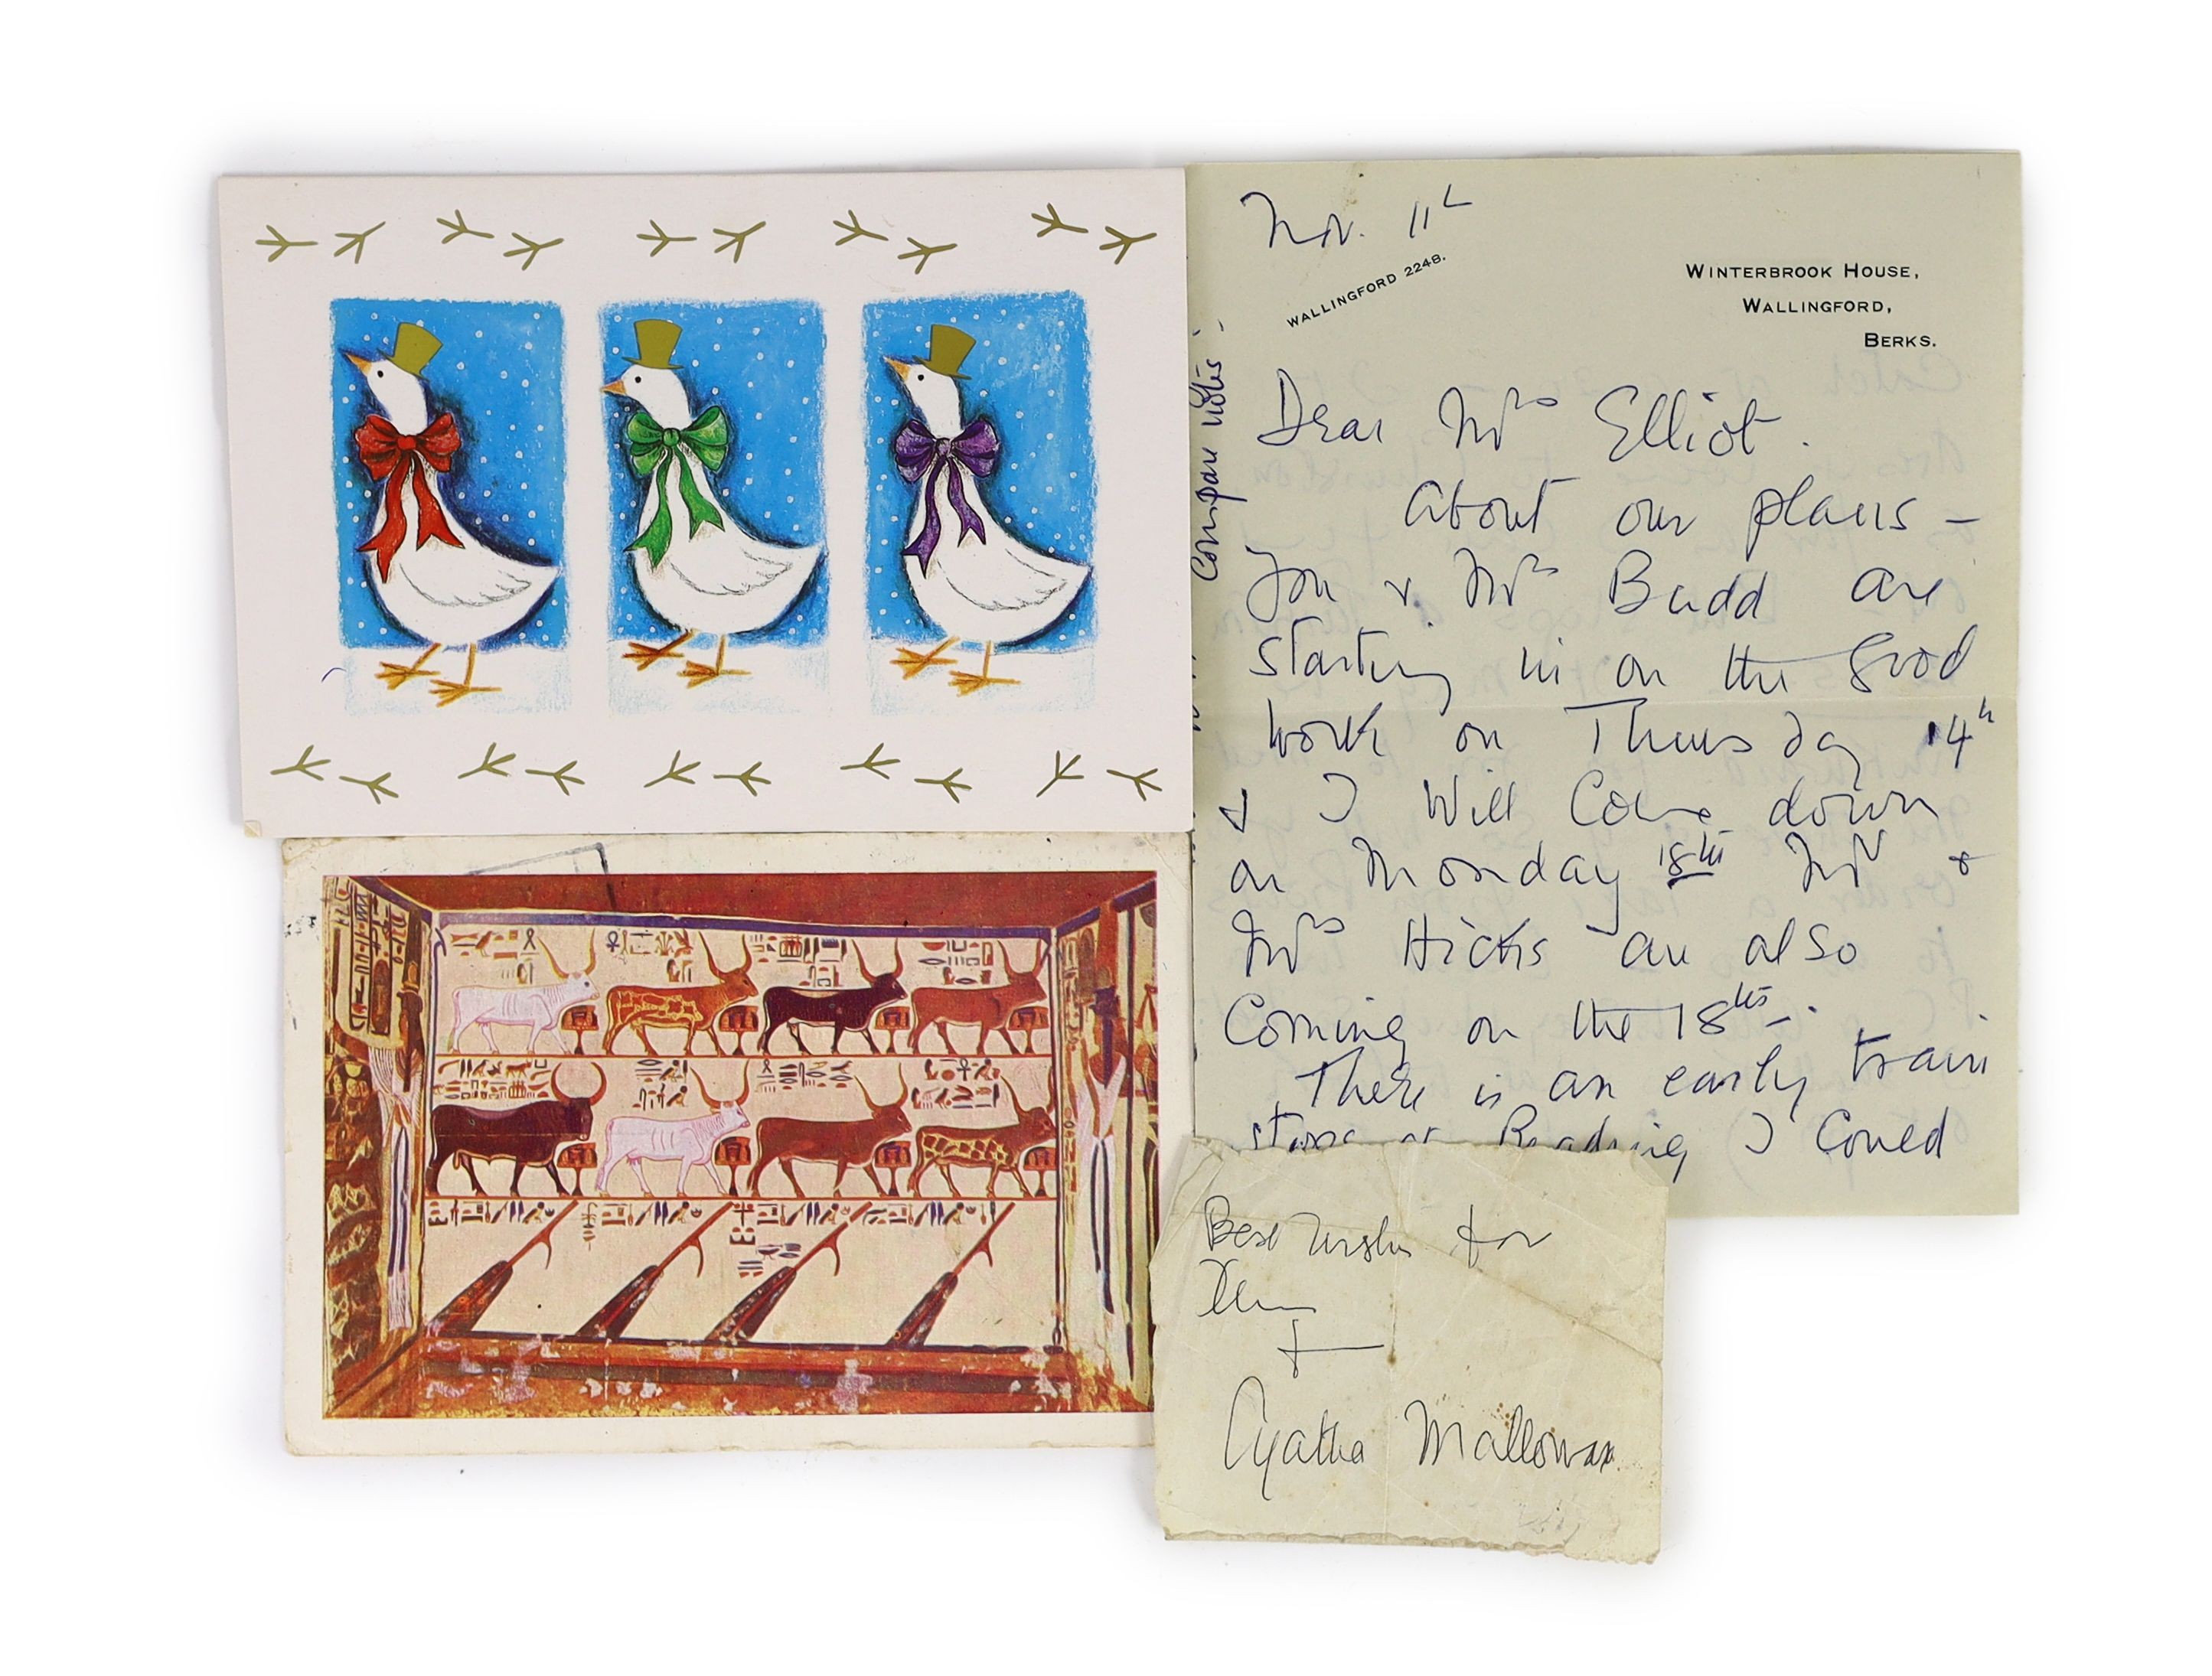 Nov. 11th
WALLINGFORD 2248.
WINTERBROOK HOUSE,
WALLINGFORD,
BERKS.
Dear Mrs Elliot.
About our plans –
You & Mrs Budd are
starting in on the good
work on Thursday 14th
& I will come down
on Monday 18th Mr &
Mrs Hicks are also
coming on the 18th.
There is an early train
stops at Reading I could
Compare notes.
Best wishes for
Xmas
Agatha Mallowan